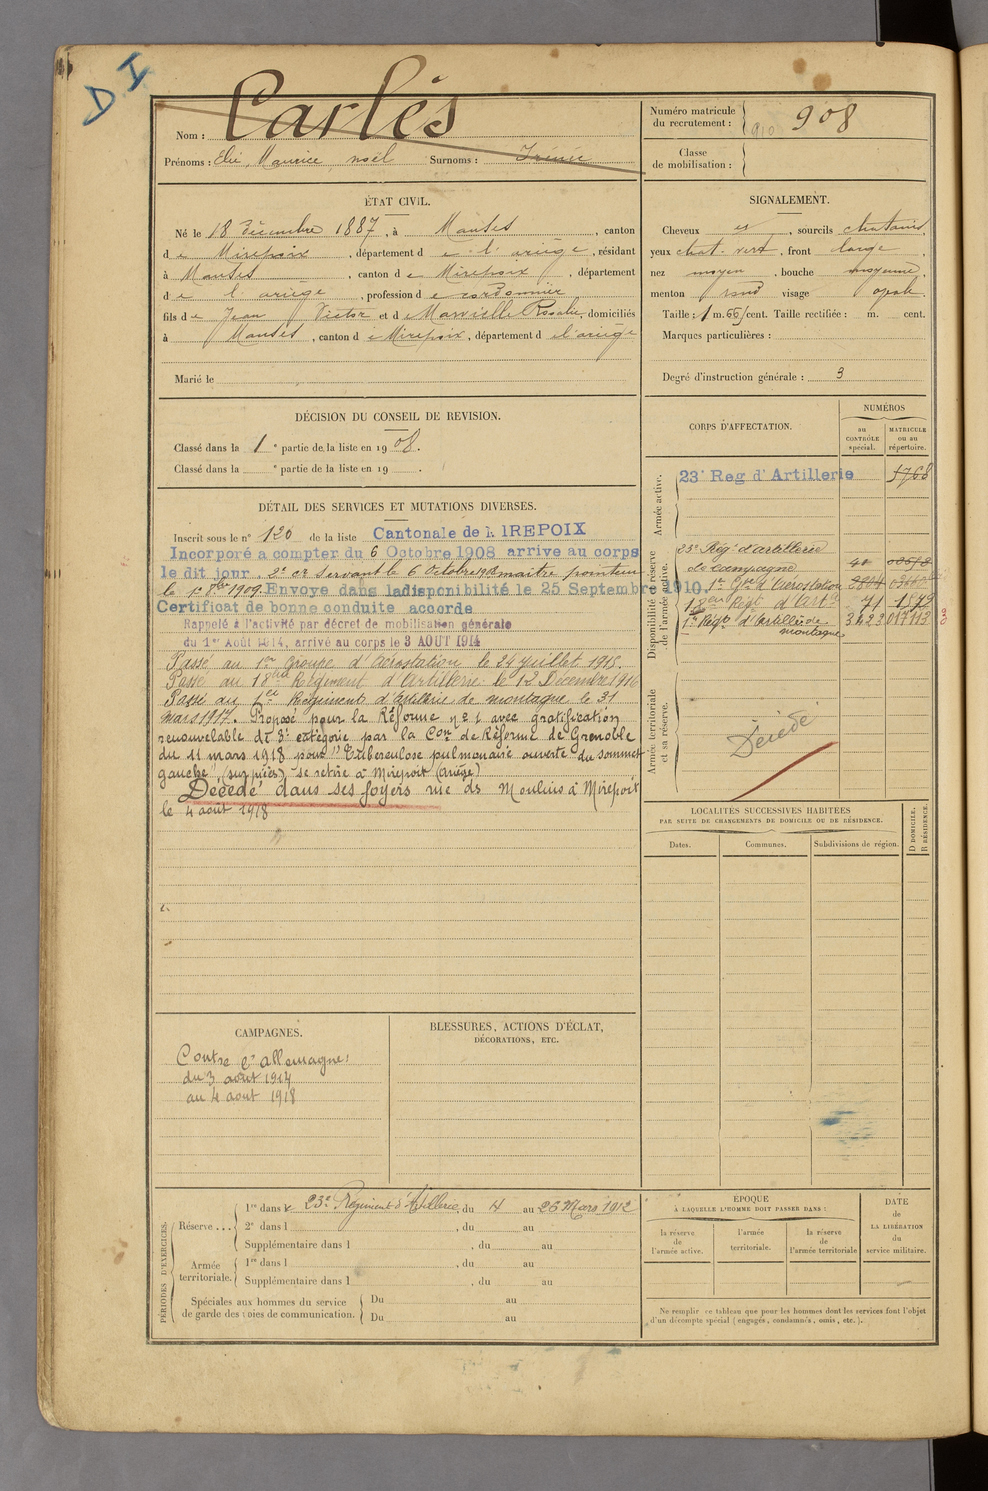 D I
Nom : Carlès
Prénoms : Elie, Maurice, noël Surnoms : Irénée
Numéro matricule
du recrutement : 910 908
Classe
de mobilisation :
ÉTAT CIVIL.
Né le 18 décembre 1887, à Manses, canton
de Mirepoix, département de l'ariège, résidant
à Manses, canton de Mirepoix, département
de l'ariège, profession de cordonnier
fils de Jean Victor et de Marvielle Rosalie, domiciliés
à Manses, canton de Mirepoix, département de l'ariège
Marié le
SIGNALEMENT.
Cheveux et, sourcils chatains,
yeux chat. vert, front large,
nez moyen, bouche moyenne,
menton rond visage ovale.
Taille : 1 m. 66 cent. Taille rectifiée : m. cent.
Marques particulières :
Degré d'instruction générale : 3
DÉCISION DU CONSEIL DE REVISION.
Classé dans la 1e partie de la liste en 1908.
Classé dans la e partie de la liste en 19 .
CORPS D'AFFECTATION.
NUMÉROS
au
CONTRÔLE
spécial.
MATRICULE
ou au
répertoire.
Armée active.
23e Reg d'Artillerie 1768
Disponibilité et réserve
de l'armée active.
23e Rég. d'artillerie
de campagne
1er Gpe d'Aérostation
18eme Régt d'Art. 71 1579
1er Régt d'Artillerie de 3423 017113
montagne
Armée territoriale
et sa réserve.
Décédé
DÉTAIL DES SERVICES ET MUTATIONS DIVERSES.
Inscrit sous le n° 120 de la liste Cantonale de MIREPOIX
Incorporé a compter du 6 Octobre 1908 arrive au corps
le dit jour. 2e cr servant le 6 Octobre 1908 maitre pointeur
le 1er 8bre 1909. Envoye dans la disponibilité le 25 Septembre 1910.
Certificat de bonne conduite accorde
Rappelé à l'activité par décret de mobilisation générale
du 1er Août 1914, arrivé au corps le 3 AOUT 1914
Passé au 1er Groupe d'Aérostation le 24 Juillet 1915.
Passé au 18eme Régiment d'Artillerie le 12 Décembre 1916
Passé au 1er Régiment d'Artillerie de montagne le 31
mars 1917. Proposé pour la Réforme n° 1 avec gratification
renouvelable de 3e catégorie par la Con de Réforme de Grenoble
du 11 mars 1918 pour "Tuberculose pulmonaire ouverte du sommet
gauche" (sur pièces) - se retire à Mirepoix (Ariège)
Décédé dans ses foyers rue des Moulins à Mirepoix
le 4 août 1918
LOCALITÉS SUCCESSIVES HABITÉES
PAR SUITE DE CHANGEMENTS DE DOMICILE OU DE RÉSIDENCE.
Dates.
Communes.
Subdivisions de région.
D DOMICILE.
R RÉSIDENCE.
CAMPAGNES.
Contre l'allemagne :
du 3 août 1914
au 4 aout 1918
BLESSURES, ACTIONS D'ÉCLAT,
DÉCORATIONS, ETC.
PÉRIODES D'EXERCICES.
Réserve ....
1re dans le 23e Régiment d'Artillerie, du 4 au 26 Mars 1912
2e dans l , du au
Supplémentaire dans l , du au
Armée
territoriale.
1re dans l , du au
Supplémentaire dans l , du au
Spéciales aux hommes du service
de garde des voies de communication.
Du au
Du au
EPOQUE
À LAQUELLE L'HOMME DOIT PASSER DANS :
la réserve
de
l'armée active.
l'armée
territoriale.
la réserve
de
l'armée territoriale
DATE
de
LA LIBÉRATION
du
service militaire.
Ne remplir ce tableau que pour les hommes dont les services font l'objet
d'un décompte spécial (engagés, condamnés, omis, etc.).